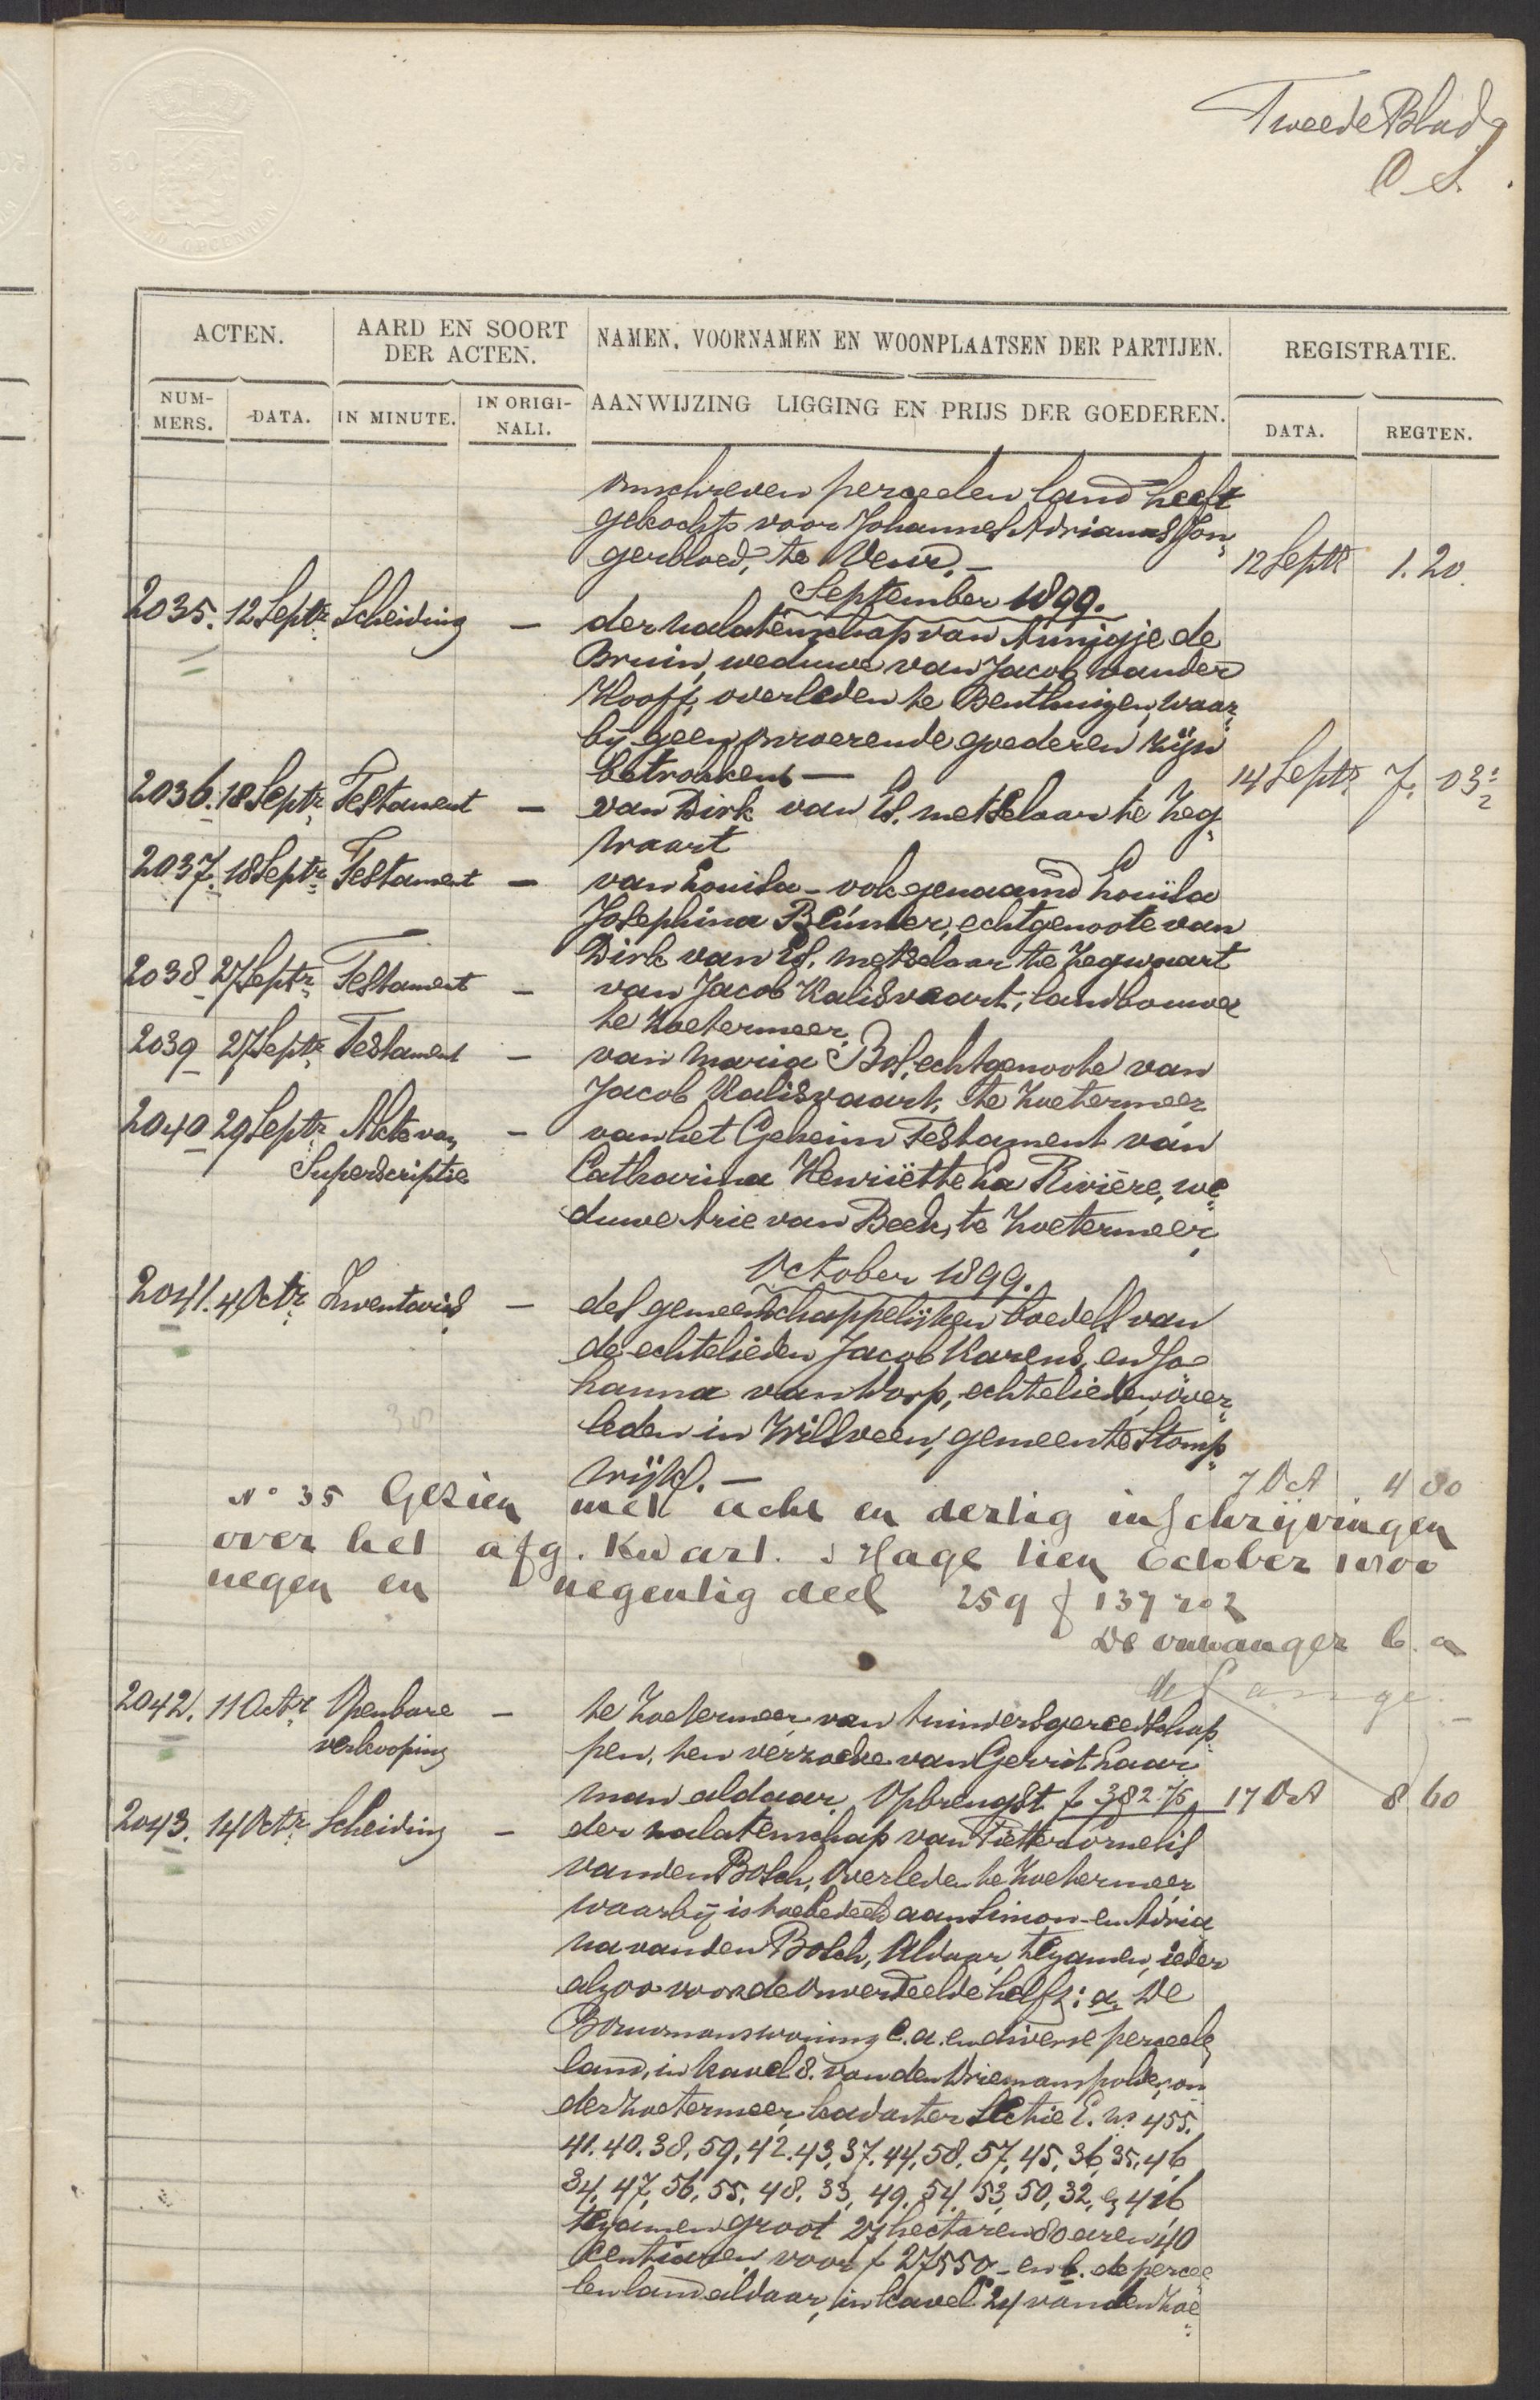 Tweede Blad
ACTEN.
AARD EN SOORT DER ACTEN.
NAMEN, VOORNAMEN EN WOONPLAATSEN DER PARTIJEN.
REGISTRATIE.
NUM-MERS.
DATA.
IN MINUTE.
IN ORIGI-NALI.
AANWIJZING LIGGING EN PRIJS DER GOEDEREN.
DATA.
REGTEN.
omschreven perceelen land heeft
gekocht voor Johannes Adrianus Jon„
gerbloed, te Veur. — 12 Septr 1.20.
September 1899.
2035. 12 Septr Scheiding — der nalatenschap van Annigje de
Bruin, weduwe van Jacob van der
Kooff, overleden te Benthuizen, waar„
bij geen onroerende goederen zijn
betrokken — 14 Septr 7. 03
2036. 18 Septr Testament — van Dirk van Es, metselaar te Zeg„
waart
2037. 18 Septr Testament — van Louisa - ook genaamd Louisa
Josephina Blümer, echtgenoote van
Dirk van Es, metselaar te Zegwaart
2038 27 Septr Testament — van Jacob Kalisvaart, landbouwer
te Zoetermeer
2039 27 Septr Testament — van Maria Bos, echtgenoote van
Jacob Kalisvaart, te Zoetermeer
2040 29 Septr Akte van — van het Geheim Testament van
Superscriptie Catharina Henriëtte La Rivière, we„
duwe Arie van Beek, te Zoetermeer
October 1899.
2041. 4 Octr Inventaris — des gemeenschappelijken boedels van
de echtelieden Jacob Karens, en Jo
hanna van Dorp, echtelieden, over„
leden in Wilsveen, gemeente Stomp„
wijk. — 7 Oct 4 80
No 35 Gezien met acht en dertig inschrijvingen
over het afg. Kwart. s Hage tien October 1800
negen en negentig deel 259 f 137 no 2
De ontvanger b. a
de Lange.
2042. 11 Octr Openbare — te Zoetermeer van tuindersgereedschap„
verkooping pen, ten verzoeke van Gerrit Laar„
man aldaar. Opbrengst f 382.75 17 Oct 8 60
2043. 14 Octr Scheiding — der nalatenschap van Pieter Cornelis
van den Bosch, overleden te Zoetermeer
waarbij is toebedeeld aan Simon en Adria
na van den Bosch, aldaar, tezamen, ieder
alzoo voor de onverdeelde helft: a. De
Bouwmanswoning c.a. en diverse perceelen
land, in kavel 8. van den Driemanspolder, on
der Zoetermeer, kadaster Sectie E. no 455.
41. 40. 38, 59, 42. 43, 37. 44, 58. 57, 45, 36, 35, 46
34, 47, 56, 55, 48. 33, 49. 54, 53, 50, 32, en 416
tezamen groot 27 hectaren 80 aren 40
centiaren voor f 27550 - en b. de percee
len land aldaar, in kavel 24 van den Zoe„